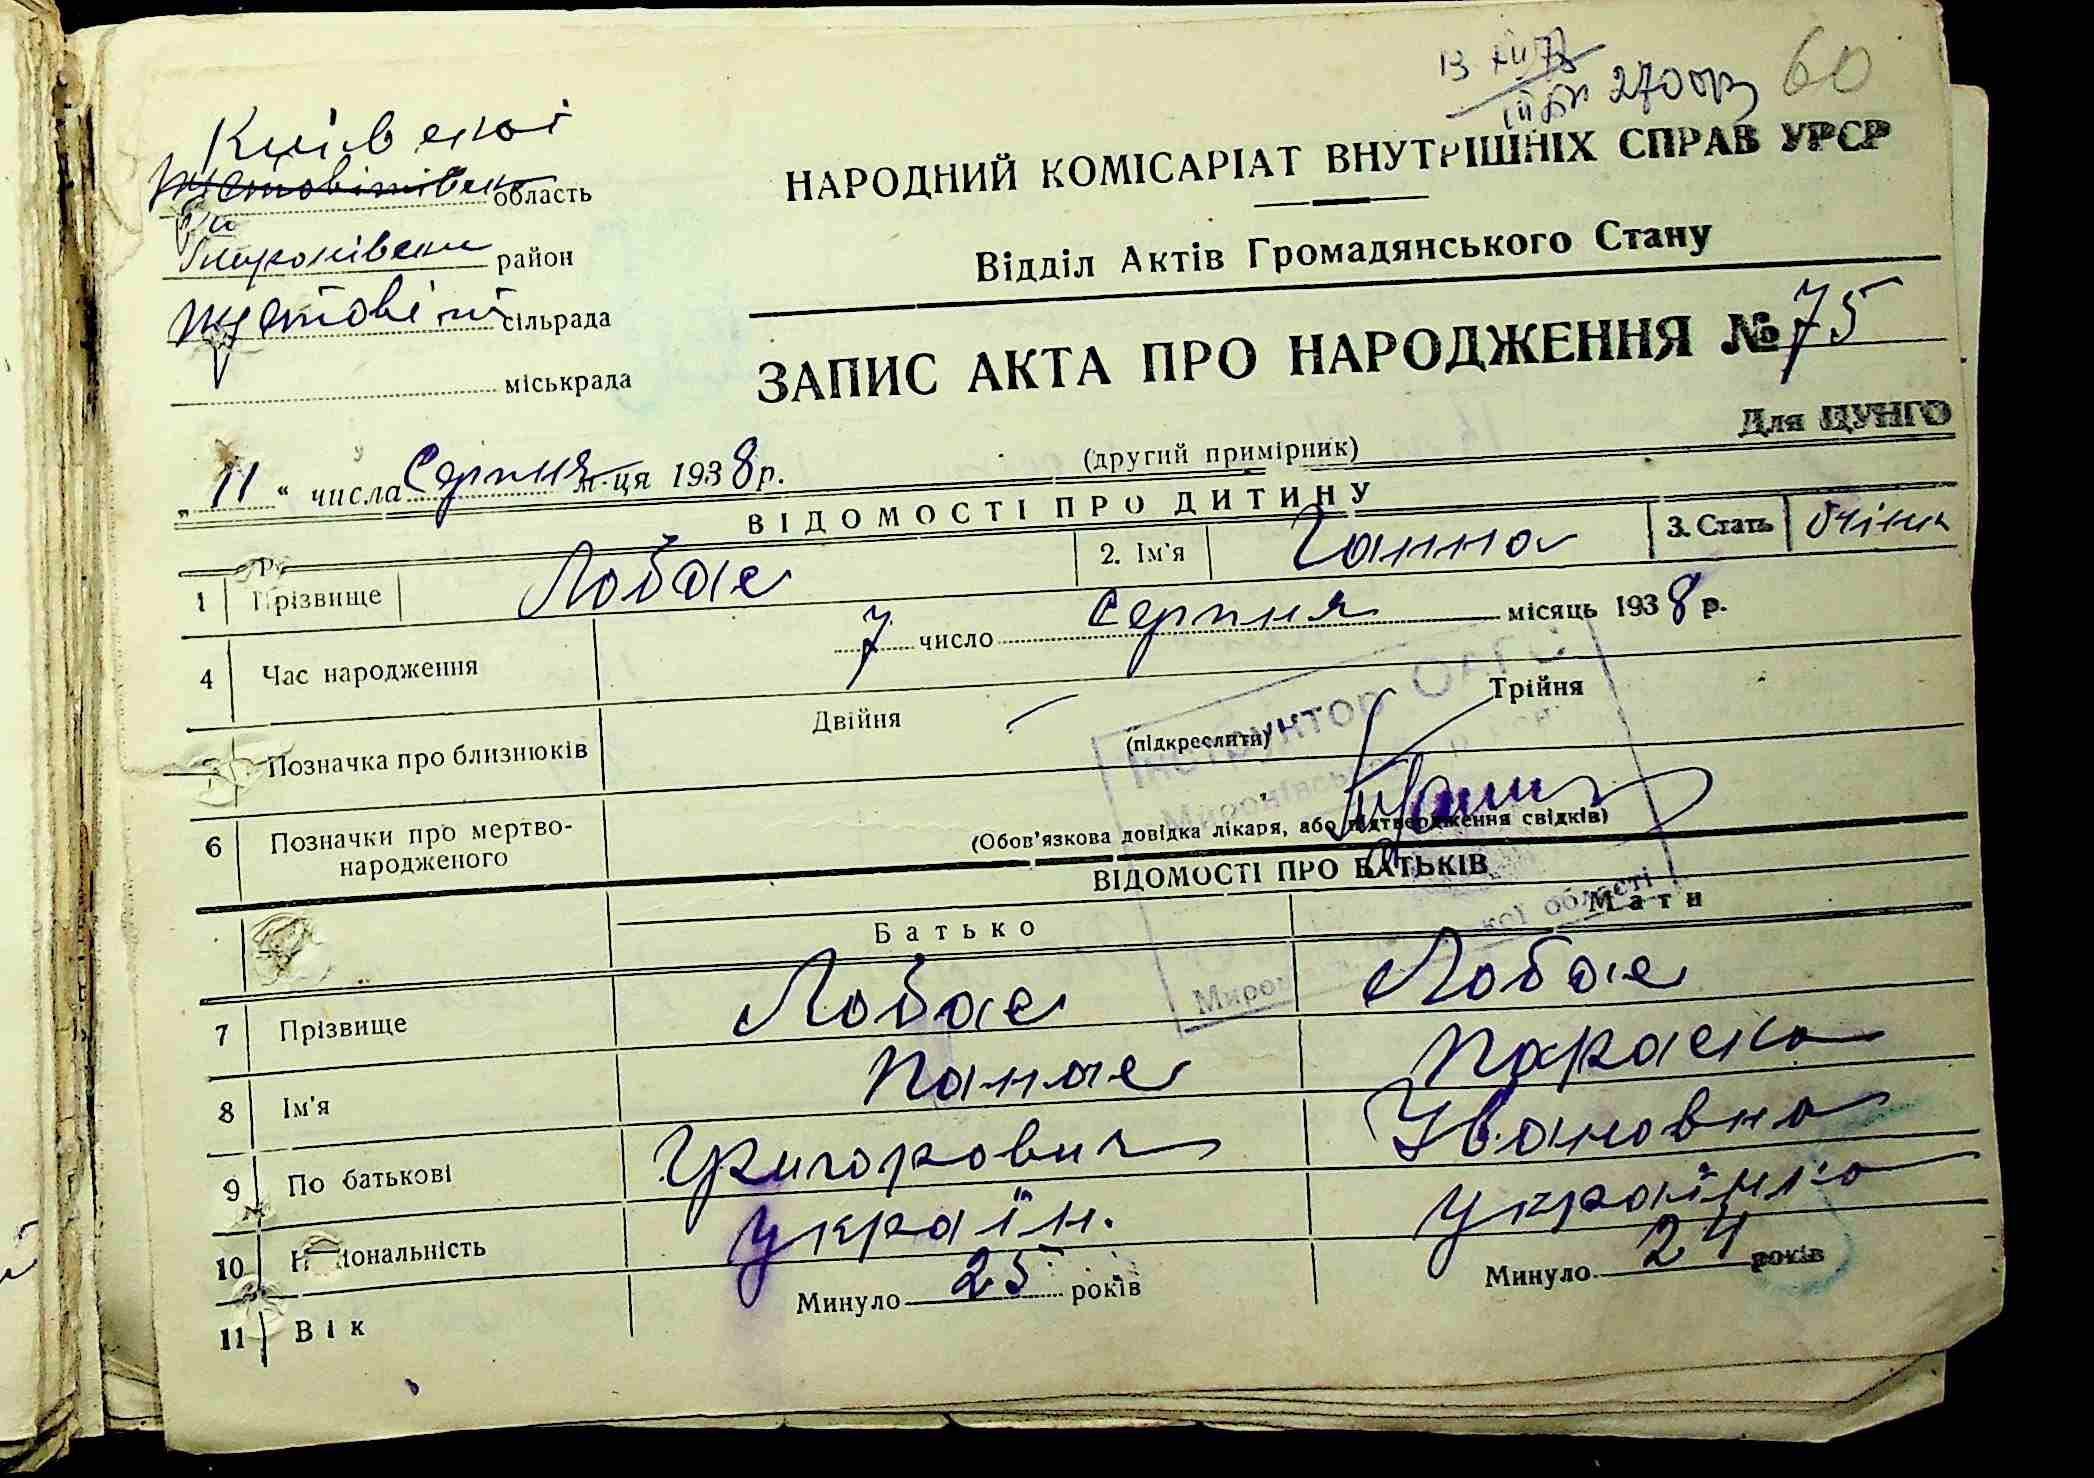 60
270
Київські
область
район
сільрада
міськрада
НАРОДНИЙ КОМІСАРІАТ ВНУТРІШНІХ СПРАВ УРСР
Відділ Актів Громадянського Стану
ЗАПИС АКТА ПРО НАРОДЖЕННЯ № 75
Для ЦУНГО
(другий примірник)
„ 11 “ числа Серпня м-ця 1938 р.
ВІДОМОСТІ ПРО ДИТИНУ
1 Прізвище Лобас 2. Ім'я Ганна 3. Стать
4 Час народження 7 число Серпня місяць 1938 р.
Позначка про близнюків Двійня — Трійня
(підкреслити)
Інструктор ОАГС
6 Позначки про мертво-
народженого
(Обов'язкова довідка лікаря, або підтвердження свідків)
ВІДОМОСТІ ПРО БАТЬКІВ
області
Батько Мати
7 Прізвище Лобас Лобас
8 Ім'я Панас Параска
9 По батькові Григорович Івановна
10 Національність україн. українка
11 Вік Минуло 25 років Минуло 24 років